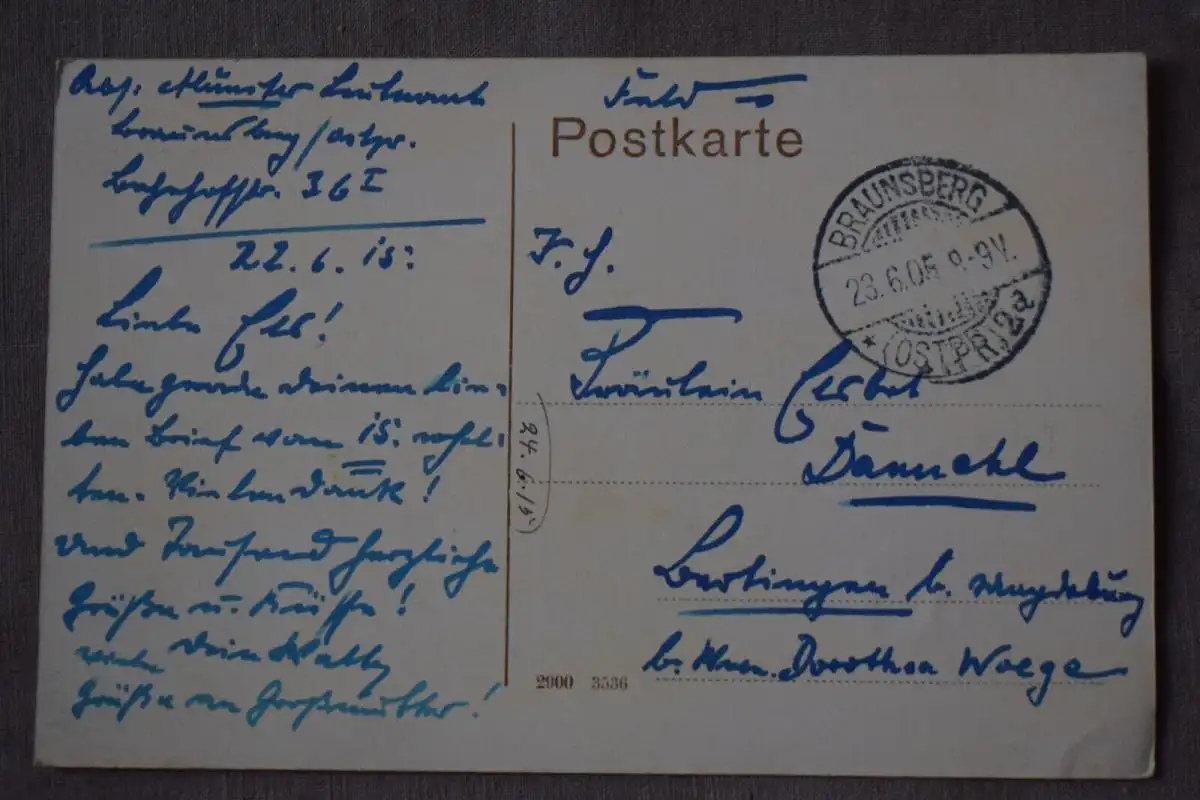 Abs: Münster Leutnant
Braunsberg / Ostpr.
Bahnhofstr. 36 I
22. 6. 15.
Liebe Else!
Habe gerade deinen lie-
ben Brief vom 15. erhal-
ten. Vielen Dank!
Und Tausend herzliche
Grüße u. Küsse!
Dein Walty
viele
Grüße an Großmutter!
Feld
Postkarte
BRAUNSBERG
23.6.0 8-9V.
*(OSTPR)2a
F. H.
Fräulein Elsbet
Dannehl
Bertingen b. Magdeburg
b. Wwe. Dorothea Woege
24. 6. 15
2900 3536